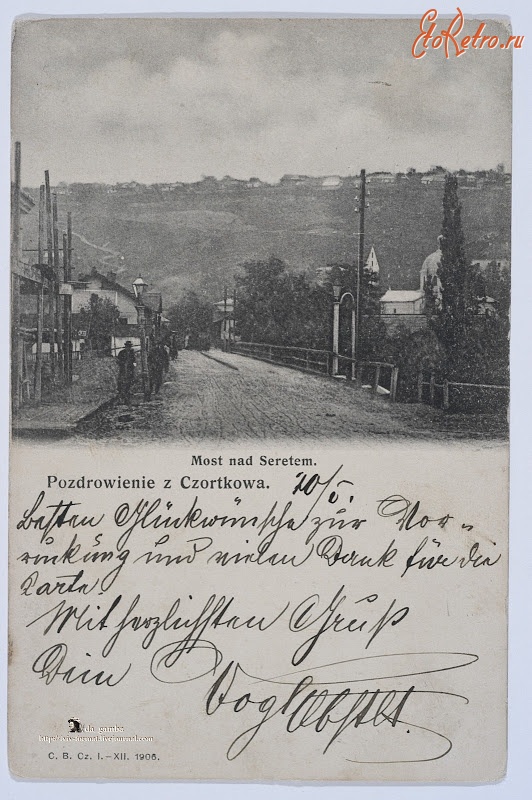 EtoRetro.ru
Most nad Seretem.
Pozdrowienie z Czortkowa. 20/5.
Besten Glückwünsche zur Vor-
rückung und vielen Dank für die
Karte.
Mit herzlichsten Gruß
Dein Vogl
C. B. Cz. I.-XII. 1906.